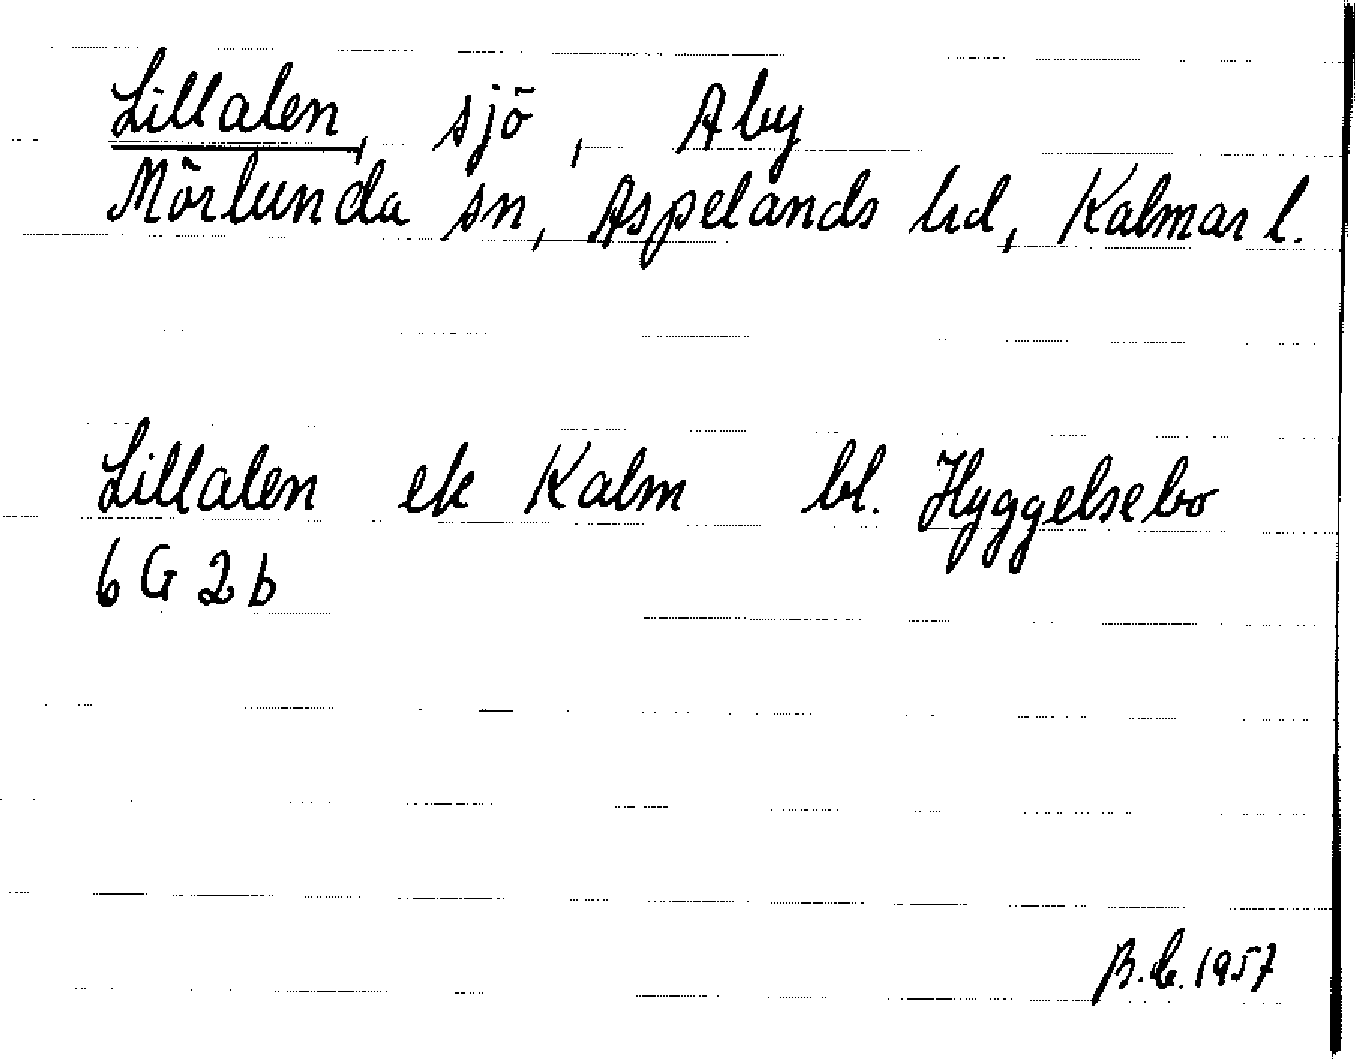 Lillalen, sjö, Aby
Mörlunda sn, Aspelands hd, Kalmar l.
Lillalen ek Kalm bl. Hyggelsebo
6G2b
B.L. 1957